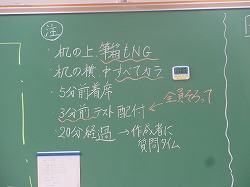 注
・机の上 筆箱もNG
・机の横、中すべてカラ
・5分前着席
全員そろって
・3分前テスト配付
・20分経過→作成者に
質問タイム